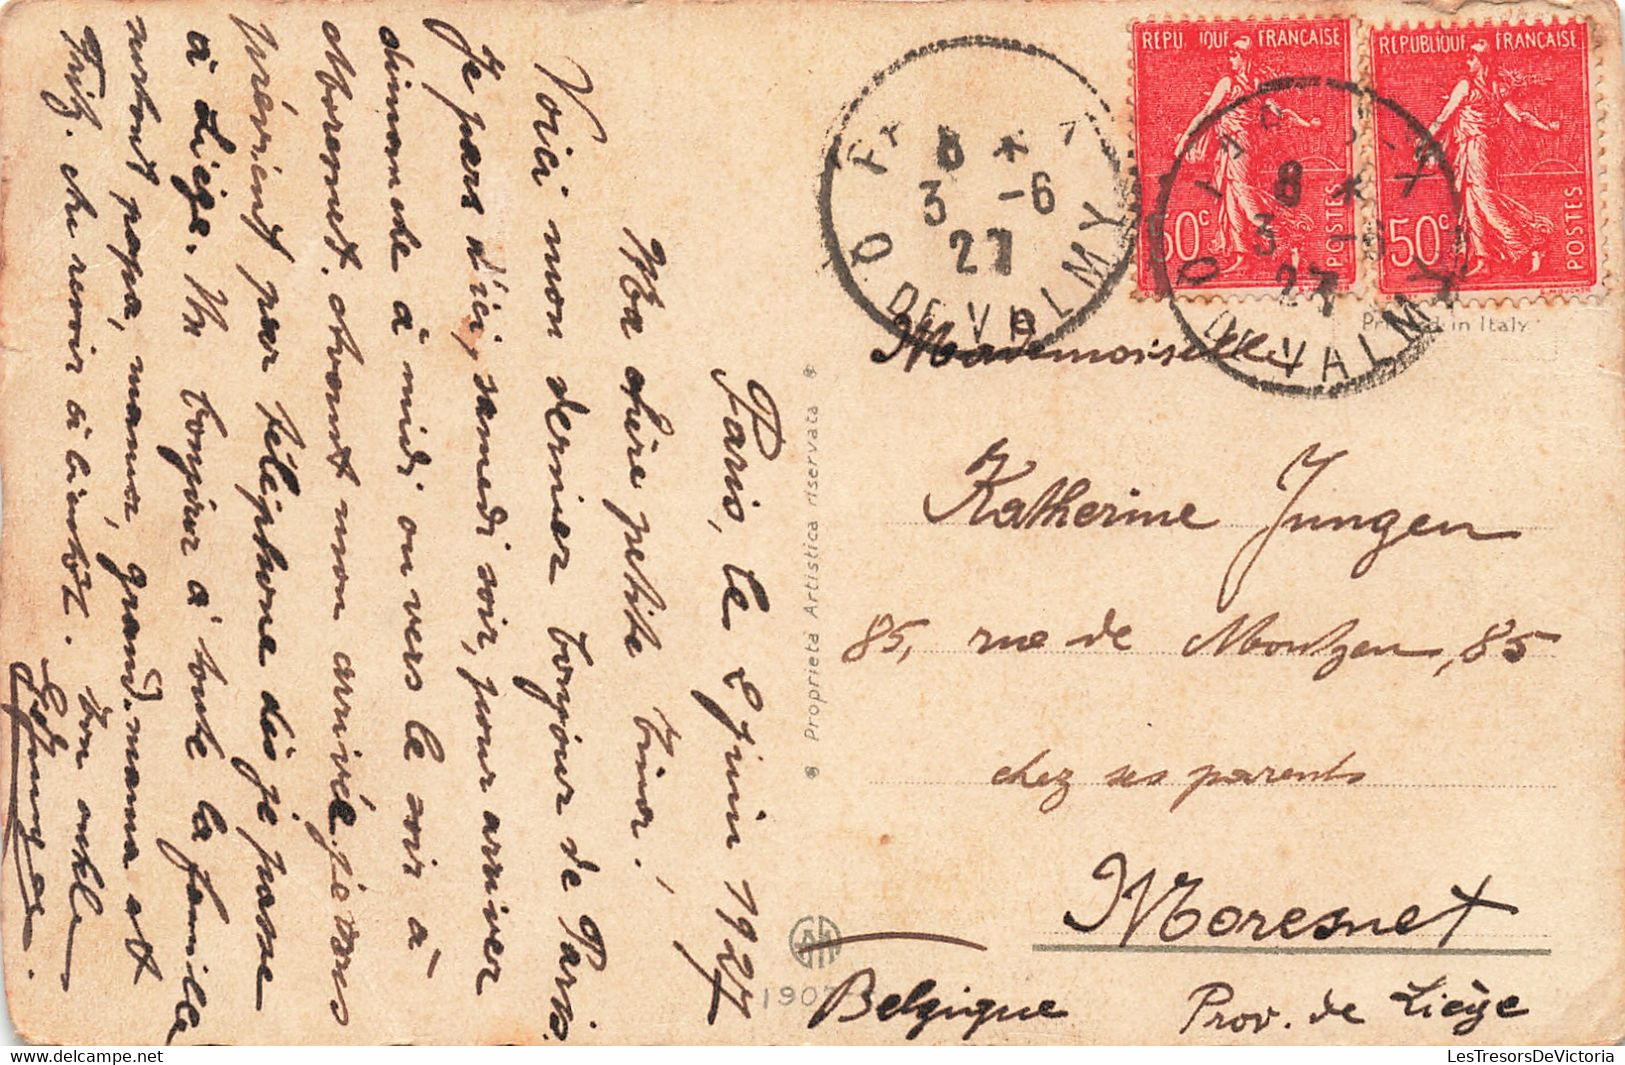 Paris, le 2 juin 1927
Ma chère petite Tina!
Voici mon dernier bonjour de Paris.
Je pars d'ici, samedi soir, pour arriver
dimanche à midi ou vers le soir à
Moresnet. Avant mon arrivée je vous
prévient par téléphone dès je passe
à Liège. Un bonjour à toute la famille
surtout papa, maman, grand-maman et
Fritz. Au revoir à bientôt. Ton oncle
Proprieta Artistica riservata
1907
REPUBLIQUE FRANÇAISE
50c
POSTES
REPUBLIQUE FRANÇAISE
50c
POSTES
8 *
3 -6
27
Q DE VALMY
8 *
3 -6
27
Q DE VALMY
Printed in Italy
Mademoiselle
Katherine Jungen
85, rue de Montzen, 85
chez ses parents
Moresnet
Belgique Prov. de Liège
LesTresorsDeVictoria